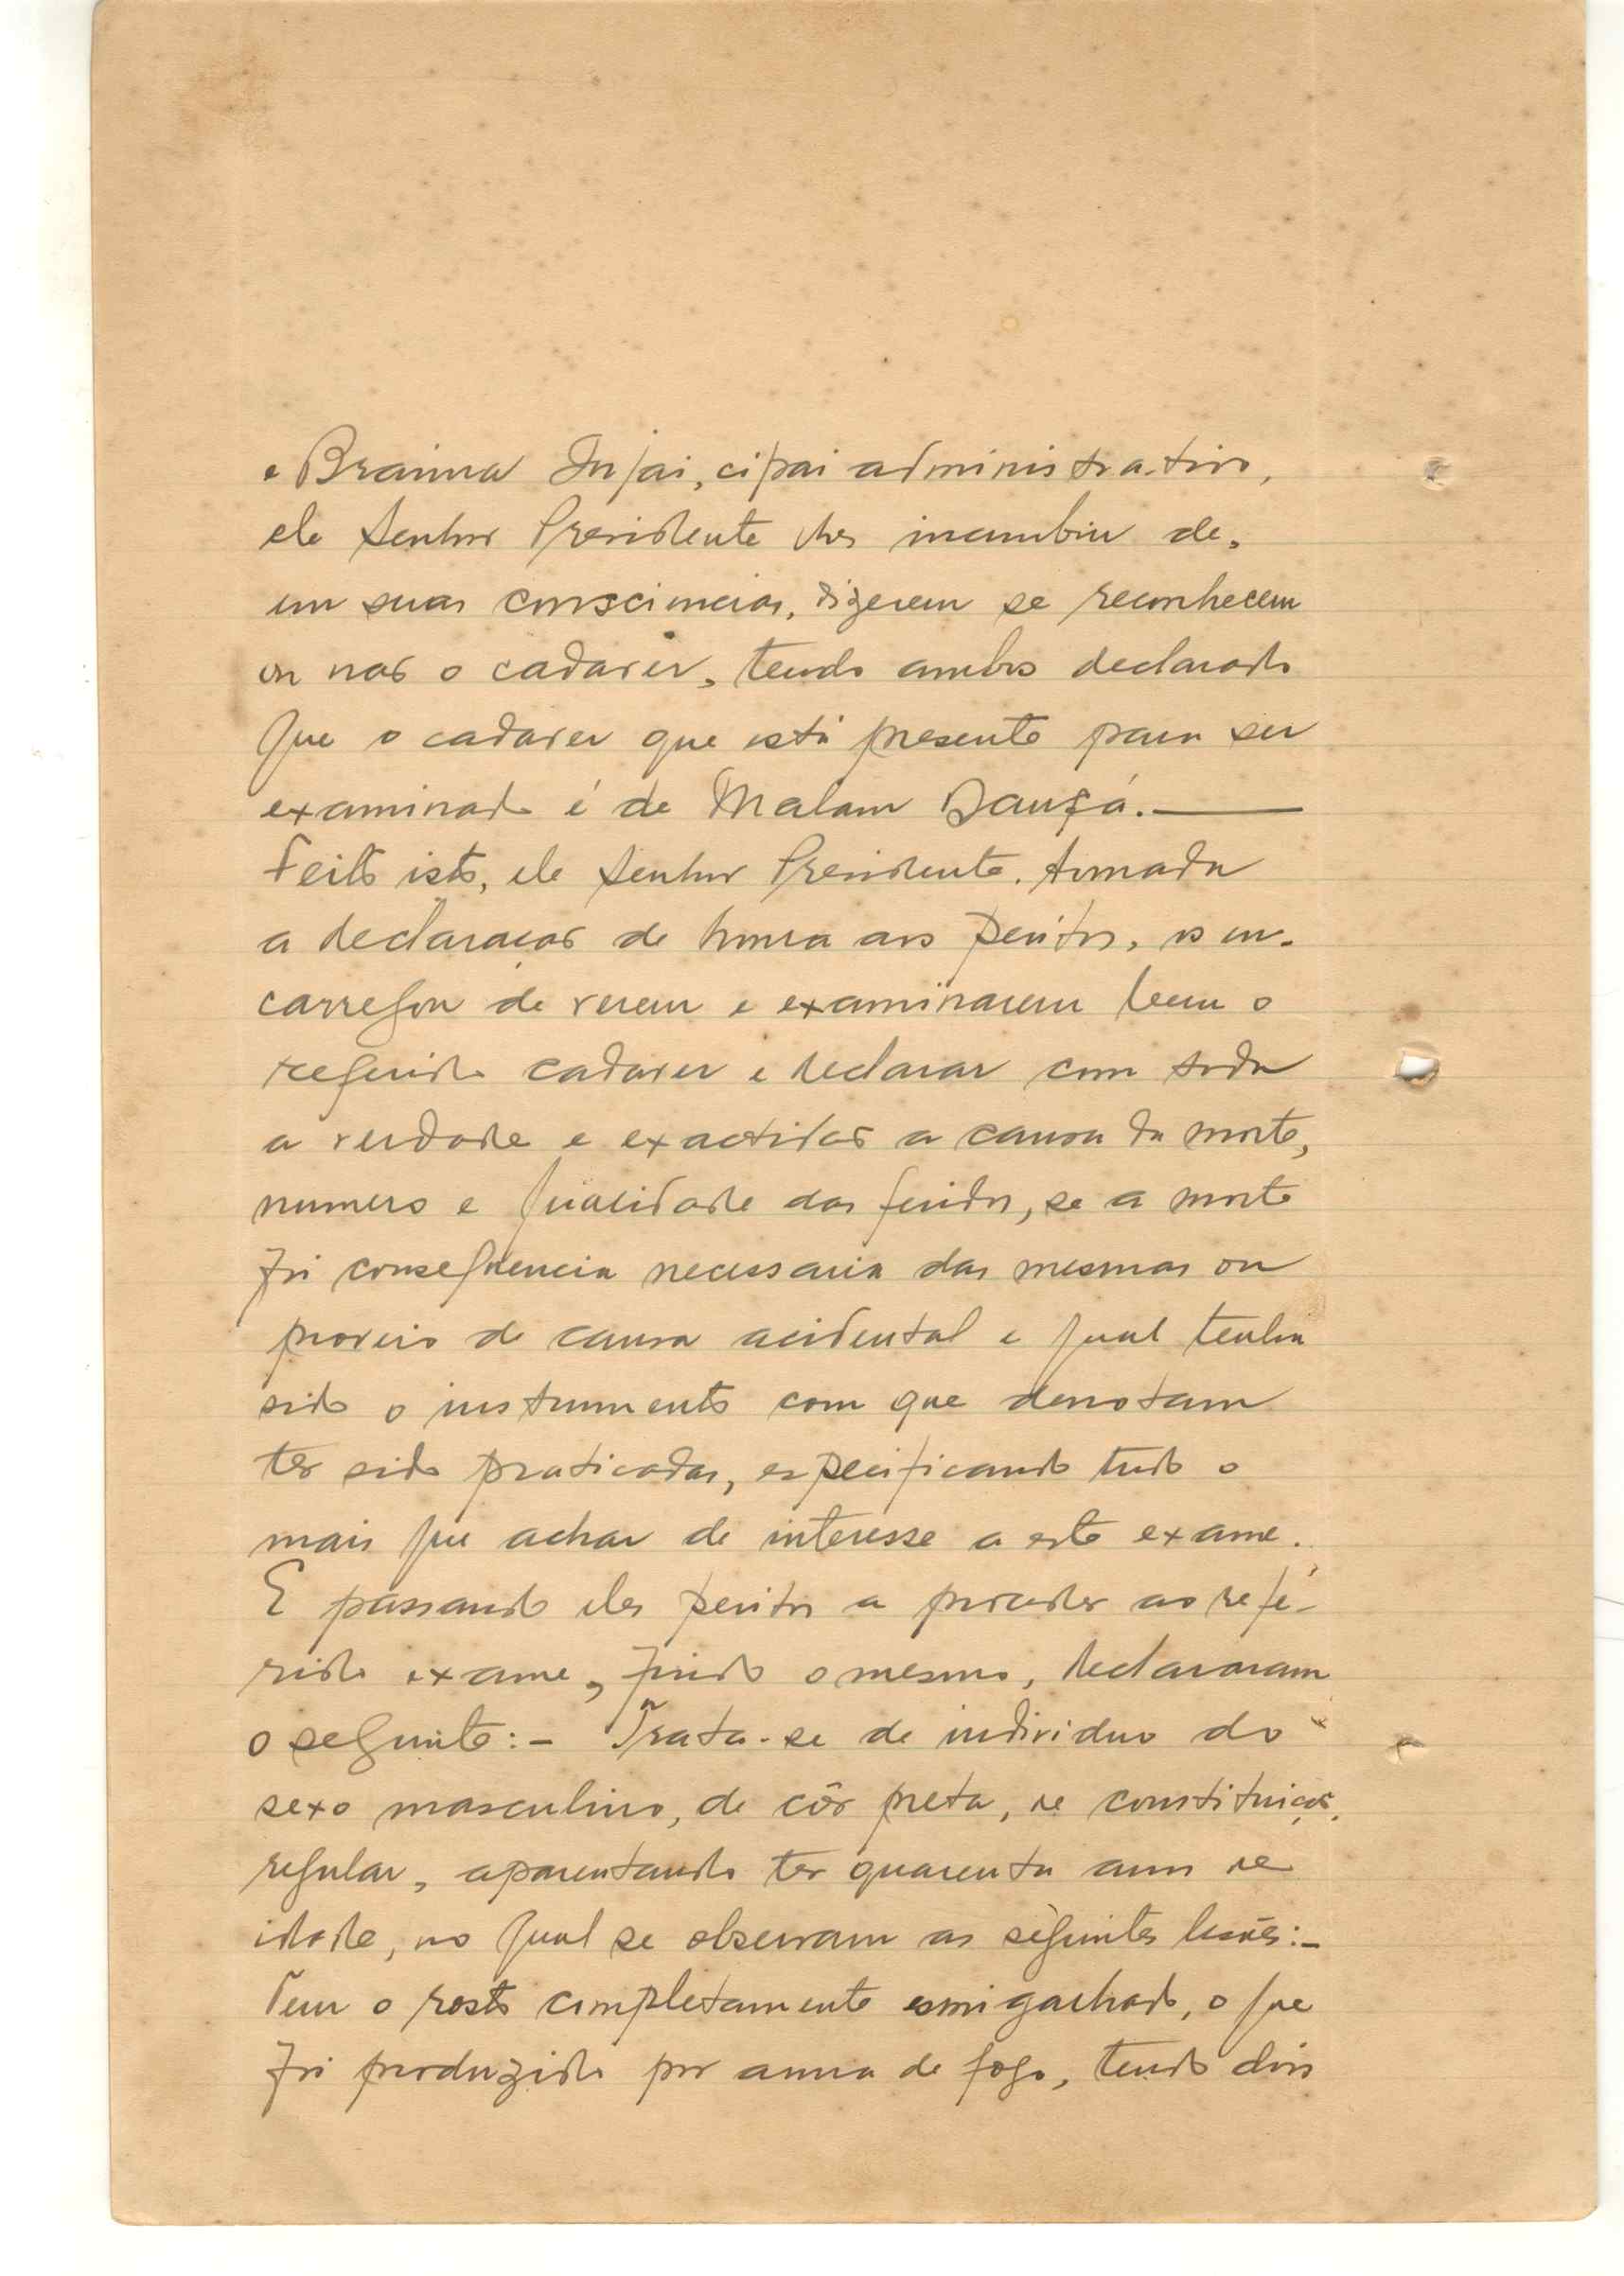 e Braima Injai, cipai administrativo,
ele Senhor Presidente lhes incumbiu de,
em suas consciencias, dizerem se reconhecem
ou não o cadaver, tendo ambos declarado
que o cadaver que está presente para ser
examinado é de Malam Dançá.
Feito isto, ele Senhor Presidente, tomada
a declaração de honra aos peritos, os en-
carregou de verem e examinarem bem o
referido cadaver e declarar com toda
a verdade e exactidão a causa da morte,
numero e qualidade das feridas, se a morte
foi consequencia necessaria das mesmas ou
proveio de causa acidental e qual tenha
sido o instrumento com que denotam
ter sido praticadas, especificando tudo o
mais que achar de interesse a este exame.
E passando eles peritos a proceder ao refe-
rido exame, findo o mesmo, declararam
o seguinte:- Trata-se de individuo do
sexo masculino, de côr preta, de constituição,
regular, aparentando ter quarenta anos de
idade, no qual se observam as seguintes lesões:-
Tem o rosto completamente esmigachado, o que
foi produzido por arma de fogo, tendo dois